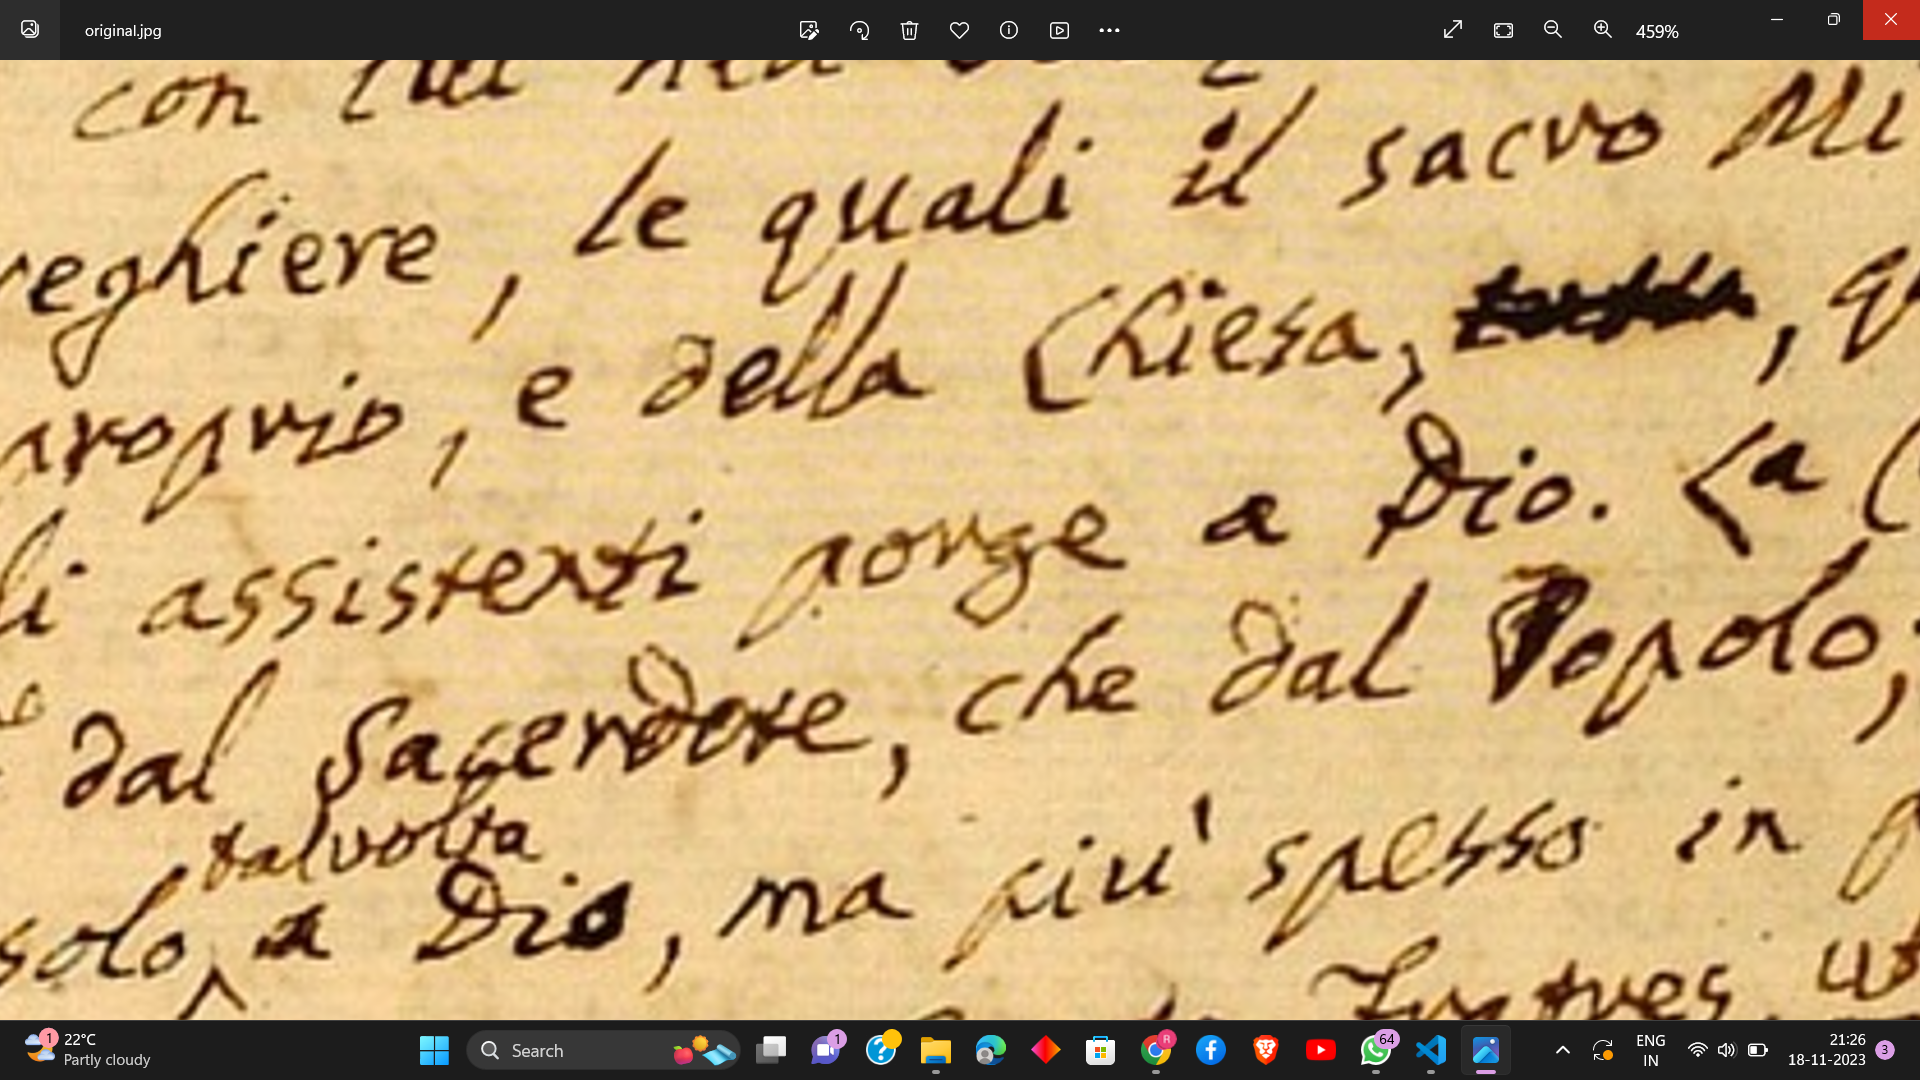 original.jpg
459%
con lui
reghiere, le quali il sacro Mi
proprio, e della Chiesa, , q
li assistenti porge a Dio. La C
dal Sacerdote, che dal Popolo,
talvolta
solo a Dio, ma piu' spesso in
1
22°C
Partly cloudy
Search
1
R
64
ENG
IN
21:26
18-11-2023
3